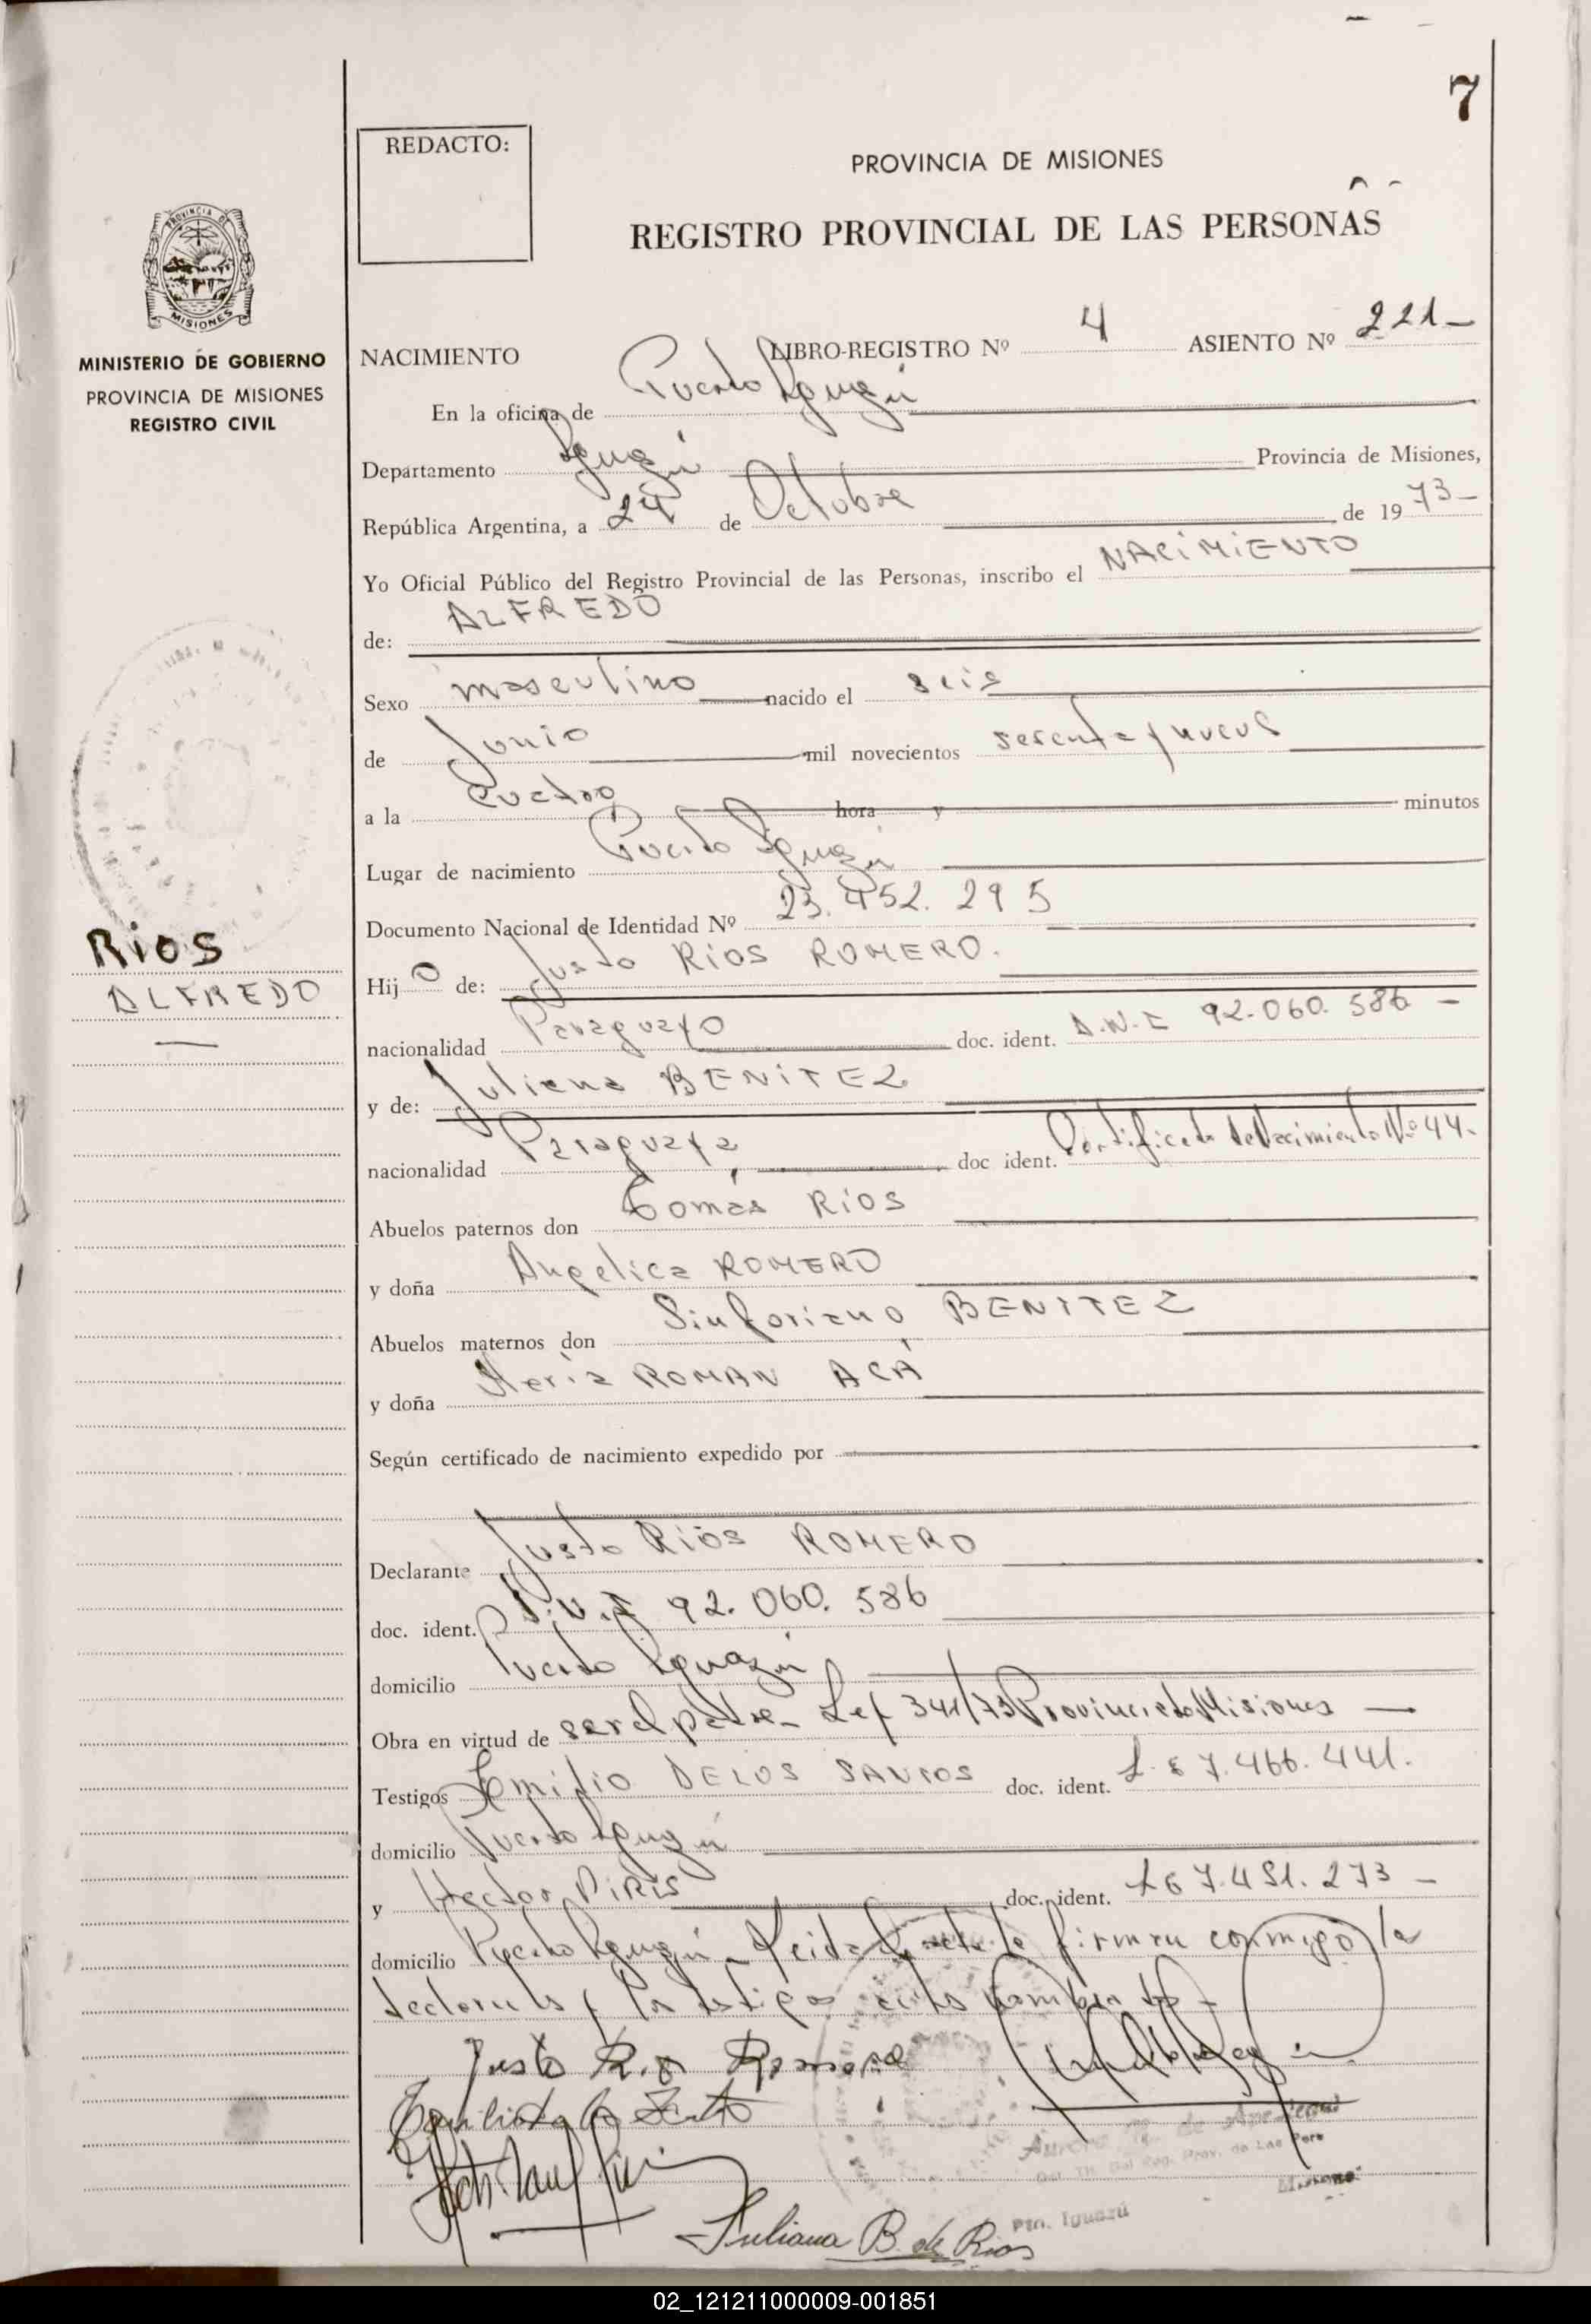 7
REDACTO:
PROVINCIA DE MISIONES
REGISTRO PROVINCIAL DE LAS PERSONAS
PROVINCIA DE
MISIONES
MINISTERIO DE GOBIERNO
PROVINCIA DE MISIONES
REGISTRO CIVIL
NACIMIENTO LIBRO-REGISTRO Nº 4 ASIENTO Nº 221-
En la oficina de Puerto Iguazú
Departamento Iguazú Provincia de Misiones,
República Argentina, a 24 de Octubre de 1973-
Yo Oficial Público del Registro Provincial de las Personas, inscribo el NACIMIENTO
de: ALFREDO
Sexo masculino nacido el seis
de Junio mil novecientos sesenta y nueve
a la cuatro hora y minutos
Lugar de nacimiento Puerto Iguazú
Documento Nacional de Identidad Nº 23.452.295
RIOS
ALFREDO
Hijo de: Justo RIOS ROMERO.
nacionalidad Paraguayo doc. ident. D.N.I 92.060.586 -
y de: Juliana BENITEZ
nacionalidad Paraguaya, doc ident. Certificado de Nacimiento Nº 44-
Abuelos paternos don Tomás RIOS
y doña Angelica ROMERO
Abuelos maternos don Sinforiano BENITEZ
y doña María ROMAN ACÁ
Según certificado de nacimiento expedido por
Declarante Justo RIOS ROMERO
doc. ident. D.N.I 92.060.586
domicilio Puerto Iguazú
Obra en virtud de ser el padre- Ley 341/73 Provincia de Misiones —
Testigos Emidio DE LOS SANTOS doc. ident. L.E 7.466.441.
domicilio Puerto Iguazú
y Hector PIRIS doc. ident. LE 7.491.273 -
domicilio Puerto Iguazú - Leida el acta la firman conmigo la
declarante y los testigos
Justo Rios Romero
Pto. Iguazú
Misiones
Juliana B. de Rios
02_121211000009-001851